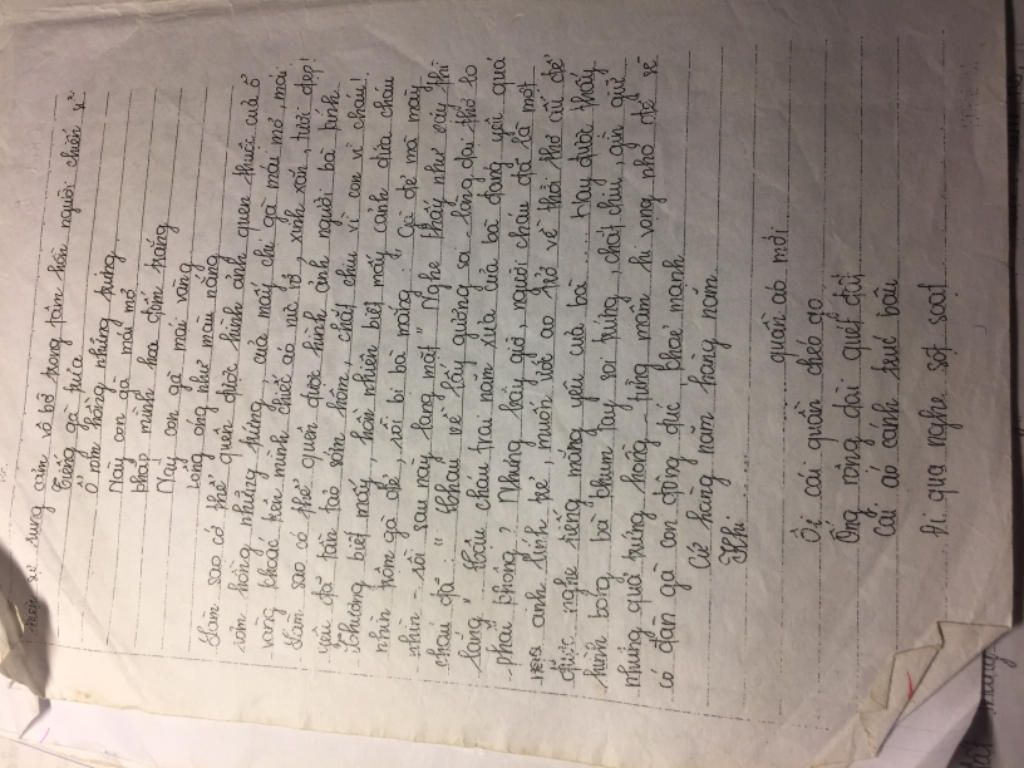 rung cảm vô bờ trong tâm hồn người chiến sĩ
Tiếng gà trưa
Ổ rơm hồng những trứng
Này con gà mái mơ
Khắp mình hoa đốm trắng
Này con gà mái vàng
Lông óng như màu nắng
Làm sao có thể quên được hình ảnh quen thuộc của ổ
rơm hồng những trứng, của mấy chị gà mái mơ, mái
vàng khoác trên mình chiếc áo nở rộ, xinh xắn, tươi đẹp!
Làm sao có thể quên được hình ảnh người bà kính
yêu đã tần tảo sớm hôm, chắt chiu vì con vì cháu!
Thương biết mấy, hồn nhiên biết mấy cảnh đứa cháu
nhìn trộm gà đẻ, rồi bị bà mắng: " Gà đẻ mà mày
nhìn - rồi sau này lang mặt " Nghe thấy như vậy thì
cháu đã: " Cháu về lấy gương soi - lòng dại thơ lo
lắng " Hỡi cháu trai năm xưa của bà đáng yêu quá
phải không? Nhưng bây giờ, người cháu đó là một
anh lính trẻ, muốn ước ao trở về thời thơ ấu để
được nghe tiếng mắng yêu của bà... Hay được thấy
hình bóng bà khum tay soi trứng, chắt chiu, gìn giữ
những quả trứng hồng, từng mầm hi vọng nhỏ để sẽ
có đàn gà con đông đúc, khoẻ mạnh
Cứ hàng năm hàng năm
Khi
quần áo mới
Ôi cái quần chéo go
Ống rộng dài quét đất
Cái áo cánh trúc bâu
Đi qua nghe sột soạt